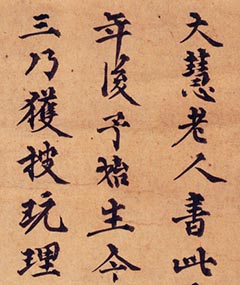 大慧老人書此
年後予始生今
三乃獲披玩理